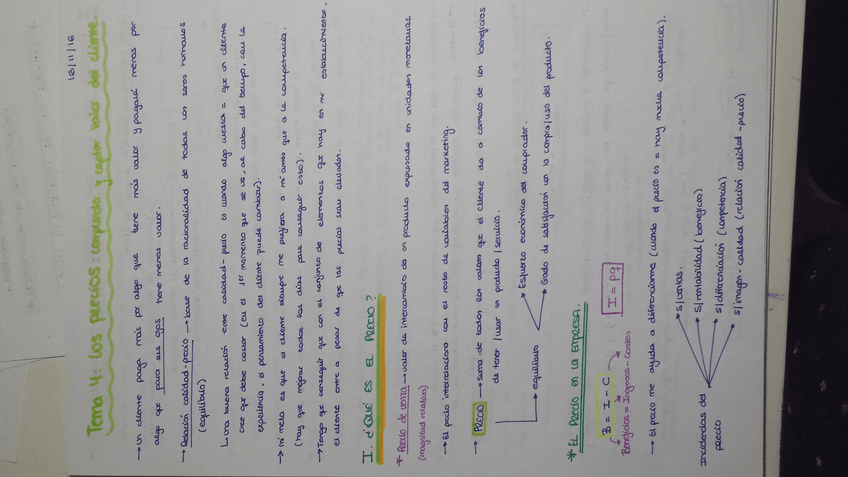 16/11/16
Tema 4: Los precios: comprender y captar valor del cliente.
→ Un cliente paga más por algo que tiene más valor y pagará menos por
algo que para sus ojos tiene menos valor.
→ Relación calidad-precio → base de la racionalidad de todos los seres humanos
(equilibrio)
Una buena relación entre calidad-precio es cuando algo cuesta = que un cliente
cree que debe costar (en el 1er momento que se ve, al cabo del tiempo, con la
experiencia, el pensamiento del cliente puede cambiar).
→ Mi meta es que el cliente siempre me prefiera a mí antes que a la competencia.
(hay que mejorar todos los días para conseguir esto).
→ Tengo que conseguir que con el conjunto de elementos que hay en mi establecimiento,
el cliente entre a pesar de que los precios sean elevados.
I. ¿QUÉ ES EL PRECIO?
* Precio de venta → valor de intercambio de un producto expresado en unidades monetarias.
(magnitud relativa)
→ El precio interrelaciona con el resto de variables del marketing.
→ PRECIO → Suma de todos los valores que el cliente da a cambio de los beneficios
de tener/usar un producto/servicio.
equilibrio
Esfuerzo económico del comprador.
Grado de satisfacción con la compra/uso del producto.
* EL PRECIO EN LA EMPRESA.
B = I - C
I = P.q
Beneficios = Ingresos - Costes
→ El precio me ayuda a diferenciarme (cuando el precio es = hay mucha competencia).
Incidencias del
precio
s/ventas.
s/rentabilidad (beneficio)
s/diferenciación (competencia)
s/imagen-calidad (relación calidad-precio)